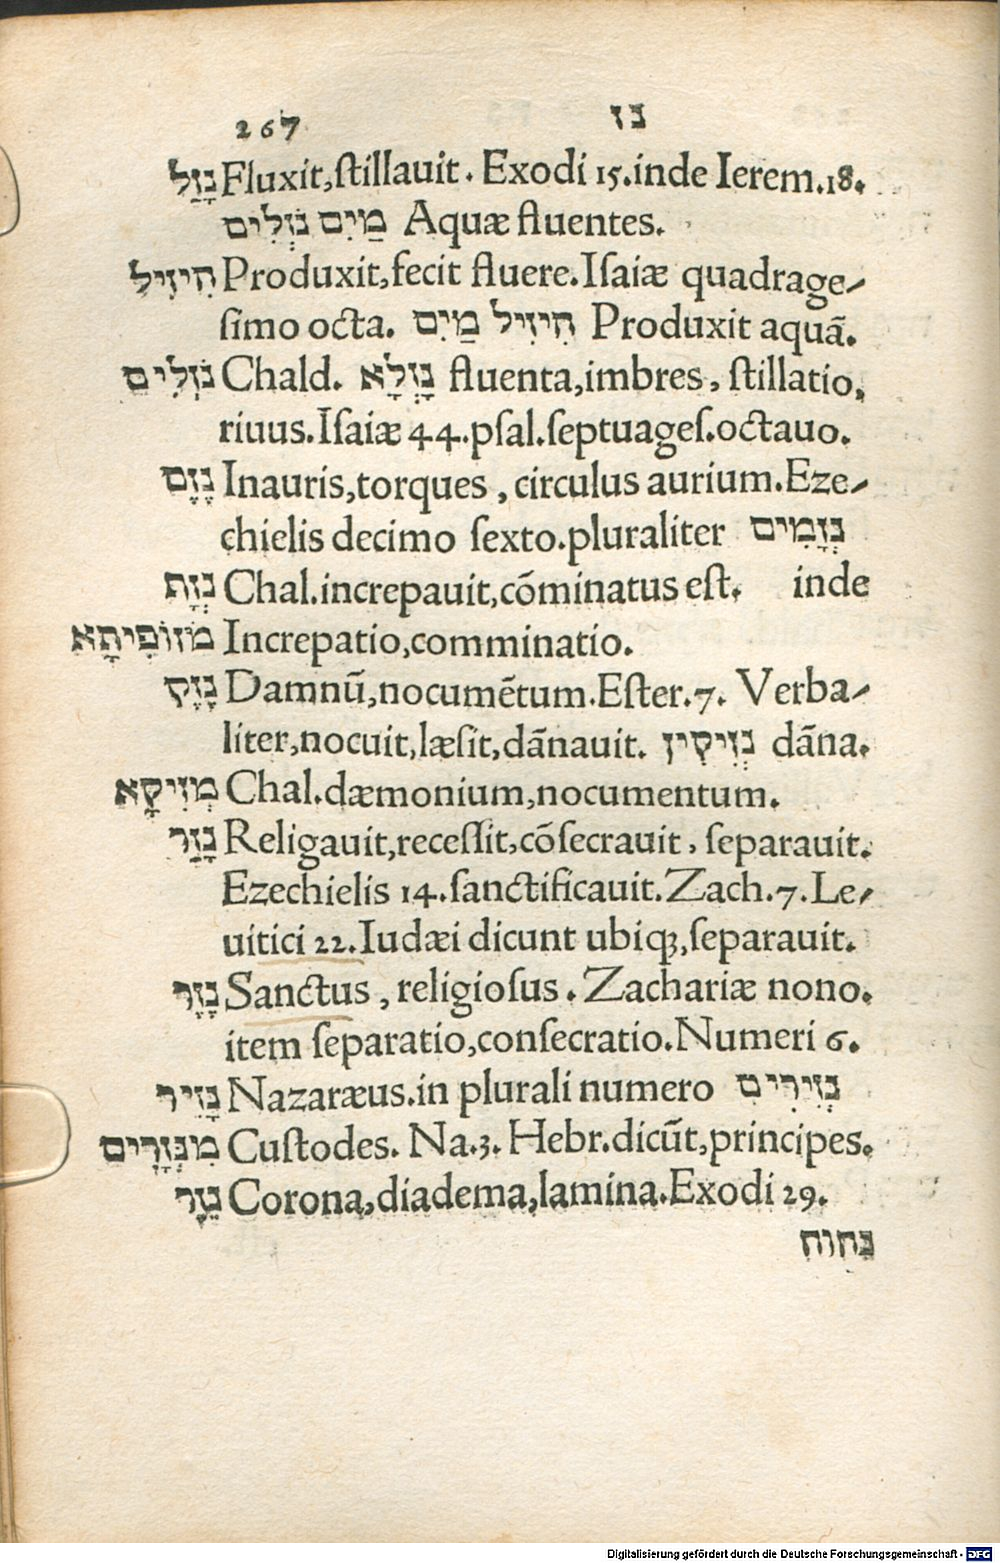 267 נז
נָזַל Fluxit,ſtillauit. Exodi 15.inde Ierem.18.
מַיִם נֹזְלִים Aquæ fluentes.
הִיזִיל Produxit,fecit fluere.Iſaiæ quadrage⸗
ſimo octa. הִיזִיל מַיִם Produxit aquā.
נֹזְלִים Chald. נָזְלָא fluenta,imbres, ſtillatio,
riuus.Iſaiæ 44.pſal.ſeptuageſ.octauo.
נֶזֶם Inauris,torques, circulus aurium.Eze⸗
chielis decimo ſexto.pluraliter נְזָמִים
נְזָת Chal.increpauit,cōminatus eſt. inde
מזופִיתָא Increpatio,comminatio.
נֶזֶק Damnū,nocumētum.Eſter.7. Verba⸗
liter,nocuit,læſit,dānauit. נְזִיקִין dāna.
מְזִיקָא Chal.dæmonium,nocumentum.
נָזַר Religauit,receſſit,cōſecrauit, ſeparauit.
Ezechielis 14.ſanctificauit.Zach.7.Le⸗
uitici 22.Iudæi dicunt ubiq;,ſeparauit.
נֶזֶר Sanctus, religioſus. Zachariæ nono.
item ſeparatio,conſecratio.Numeri 6.
נָזִיר Nazaræus.in plurali numero נְזִירִים
מִנְּזָרִים Cuſtodes. Na.3. Hebr.dicūt,principes.
נֵזֶר Corona,diadema,lamina.Exodi 29.
נִחוח
Digitalisierung gefördert durch die Deutsche Forschungsgemeinschaft - DFG